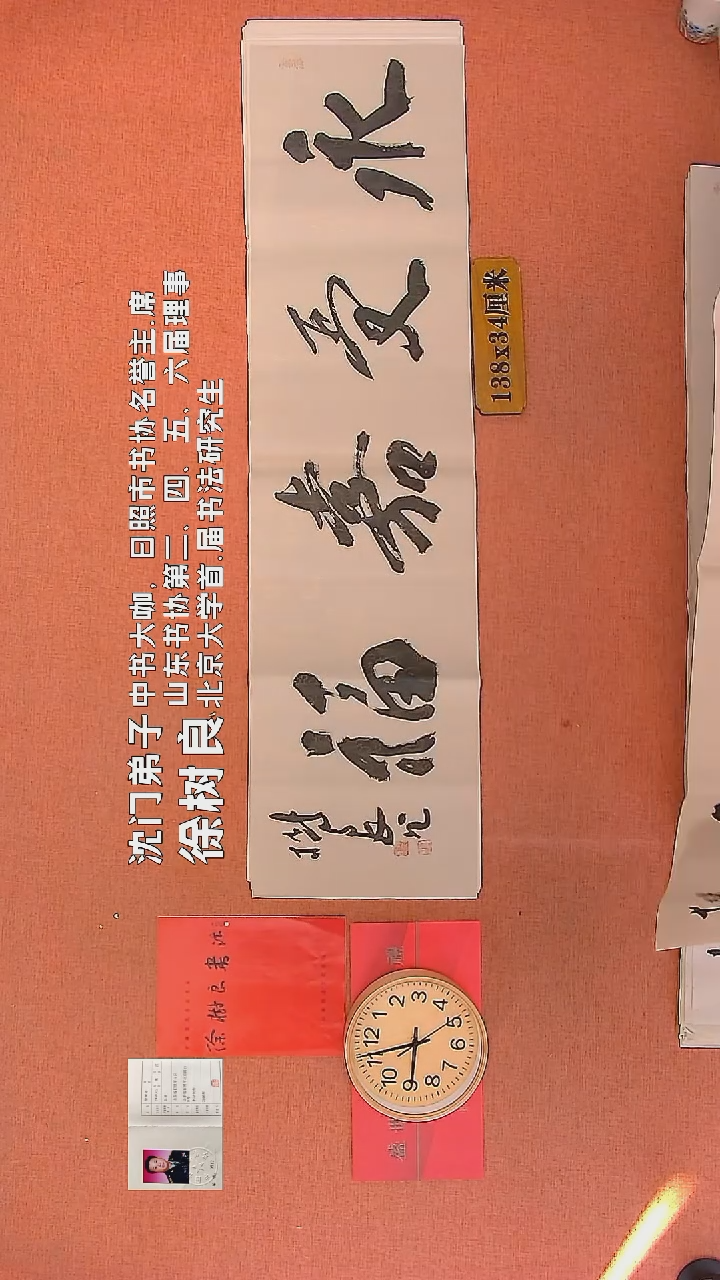 沈门弟子 中书大咖，日照市书协名誉主.席
徐树良 山东书协第三、四、五、六届理事
北京大学首.届书法研究生
永受嘉福
138x34厘米
12
1
2
3
4
5
6
7
8
9
10
11